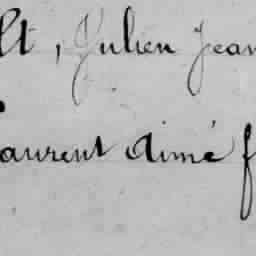 lt, Julien Jean
aurent Aimé f